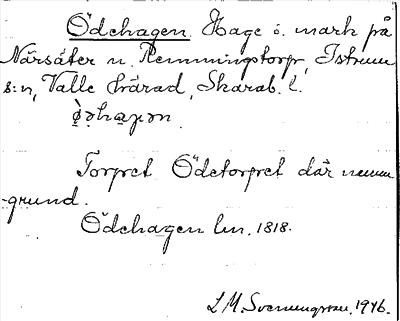 Ödehagen. Hage o. mark på
Närsäter u. Remmingstorp, Istrum
s:n, Valle härad, Skarab. l.
Torpet Ödetorpet där numm
-grund.
Ödehagen lm. 1818.
L.M. Svenungsson, 1946.